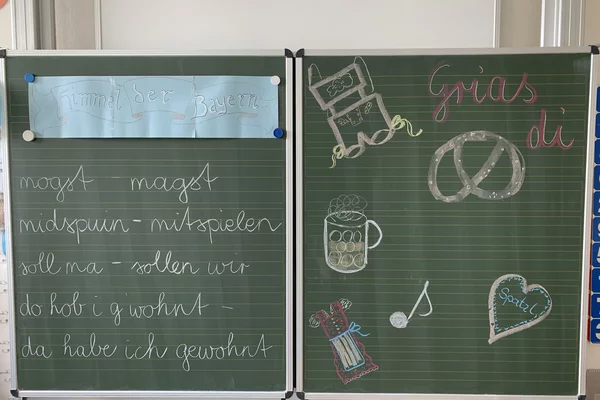 Himmel der Bayern
mogst - magst
midspuin - mitspielen
soll ma - sollen wir
do hob i g'wohnt -
da habe ich gewohnt
Grias
di
Spatzl